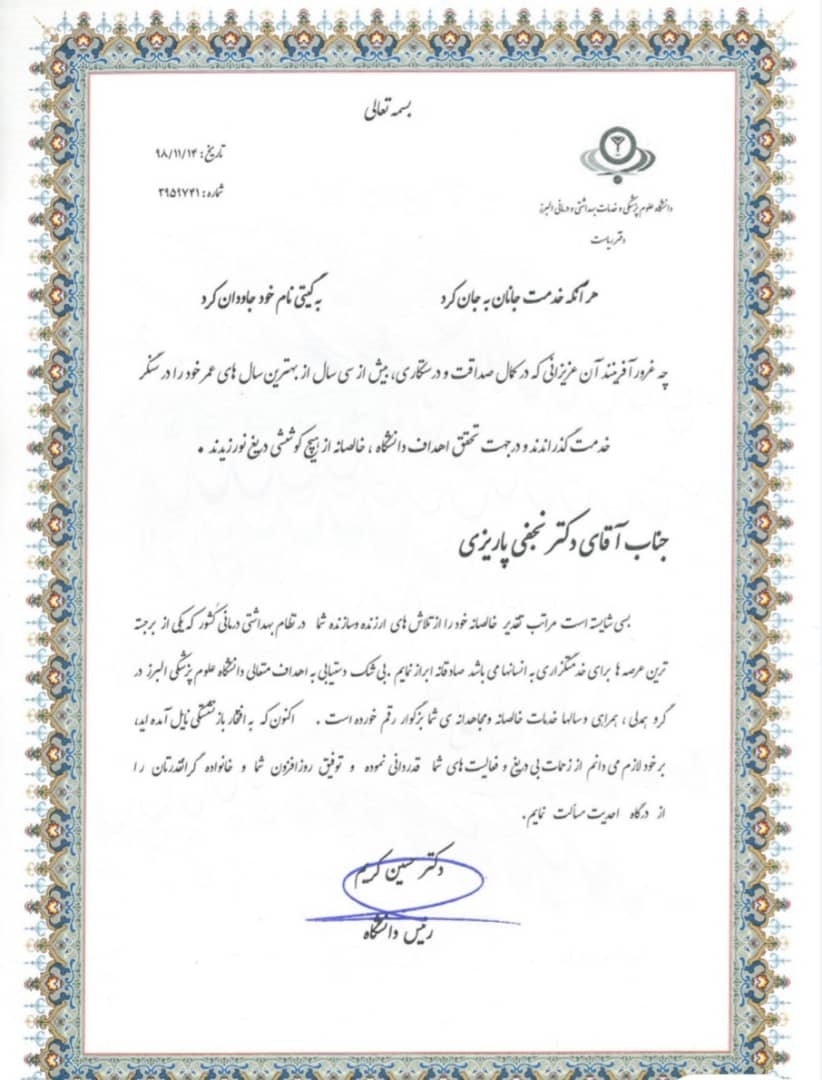 بسمه تعالی
تاریخ: ۹۸/۱۱/۱۴
شماره: ۳۹۵۹۷۴۱
دانشگاه علوم پزشکی و خدمات بهداشتی و درمانی البرز
دفتر ریاست
هر آنکه خدمت جانان به جان کرد به گیتی نام خود جاودان کرد
چه غرور آفرینند آن عزیزانی که در کمال صداقت و درستکاری، بیش از سی سال از بهترین سال های عمر خود را در سنگر
خدمت گذراندند و در جهت تحقق اهداف دانشگاه ، خالصانه از هیچ کوششی دریغ نورزیدند .
جناب آقای دکتر نجفی پاریزی
بسی شایسته است مراتب تقدیر خالصانه خود را از تلاش های ارزنده وسازنده شما در نظام بهداشتی درمانی کشور که یکی از برجسته
ترین عرصه ها برای خدمتگزاری به انسانها می باشد صادقانه ابراز نمایم .بی شک دستیابی به اهداف متعالی دانشگاه علوم پزشکی البرز در
گرو همدلی ، همراهی وسالها خدمات خالصانه ومجاهدانه ی شما بزرگوار رقم خورده است . اکنون که به افتخار بازنشستگی نایل آمده اید،
بر خود لازم می دانم از زحمات بی دریغ و فعالیت های شما قدردانی نموده و توفیق روز افزون شما و خانواده گرانقدرتان را
از درگاه احدیت مسألت نمایم.
دکتر حسین کریم
رئیس دانشگاه